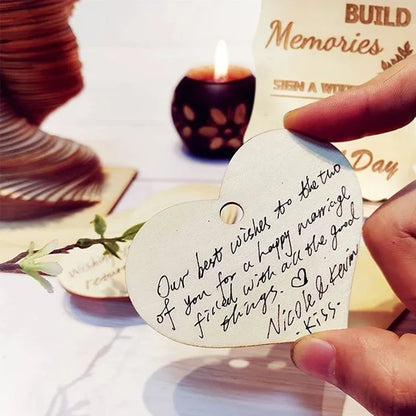 BUILD
Memories
SIGN A
Day
Our best wishes to the two
of you for a happy marriage
filled with all the good
things. ♡
Nicole & Kevin
- Kiss -